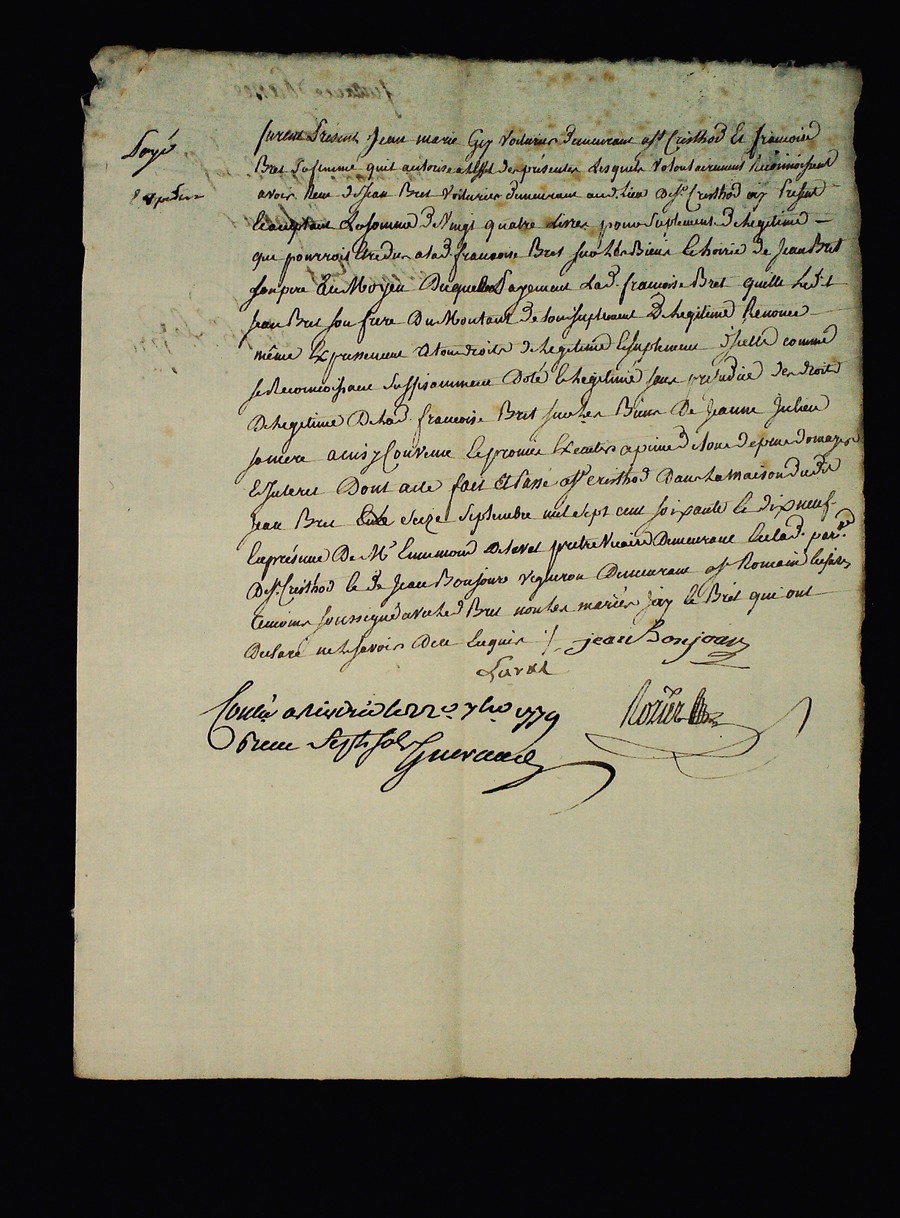 Payé
Expedié
furent Présent Jean marie Gey Voiturier demeurant a St Cristhod Et francoise
Bret Sa femme quil autorise a Leffet des présentes Lesquels volontairement Reconnoissent
avoir Recu de Jean Bret Voiturier demeurant au d. Lieu de St Cristhod icy Present
Acceptant La somme de Vingt quatre Livres pour Suplement de legitime
que pourroit Etre due a lad. francoise Bret sur Les Biens Et hoirie de Jean Bret
Son pere Au Moyen Duquel Payement Lad. francoise Bret quitte Led. St
Jean Bret Son frere Du Montant de Son Suplement De legitime Renonce
même Expressement A tous droits de legitime Et Suplement d'icelle comme
se Reconnoissant Suffisamment Doté Et legitimé Sans préjudice des droits
De legitime De lad. francoise Bret sur Les Biens De Jeanne Julien
sa mere ainsy Convenu Et promis Executer a peine de tous depens domages
Et Interet Dont acte fait Et Passé a St Cristhod Dans La maison dudit
Jean Bret Le Seize Septembre mil sept cent soixante Et dix neuf
En présence De Mre Ennemond delaval pretre Vicaire Demeurant En lad. parse.
De St Cristhod Et de Jean Bonjour vigneron Demeurant a St Romain En Jarez
temoins Soussigné avec led. Bret non Les mariés Gey Et Bret qui ont
Declaré ne Le Savoir De ce Enquis ./. jean Bonjour
Laval
Conllé a Rivedié le 22e 7bre 1779
Recu Sept Sols
Guerraud
Rozier